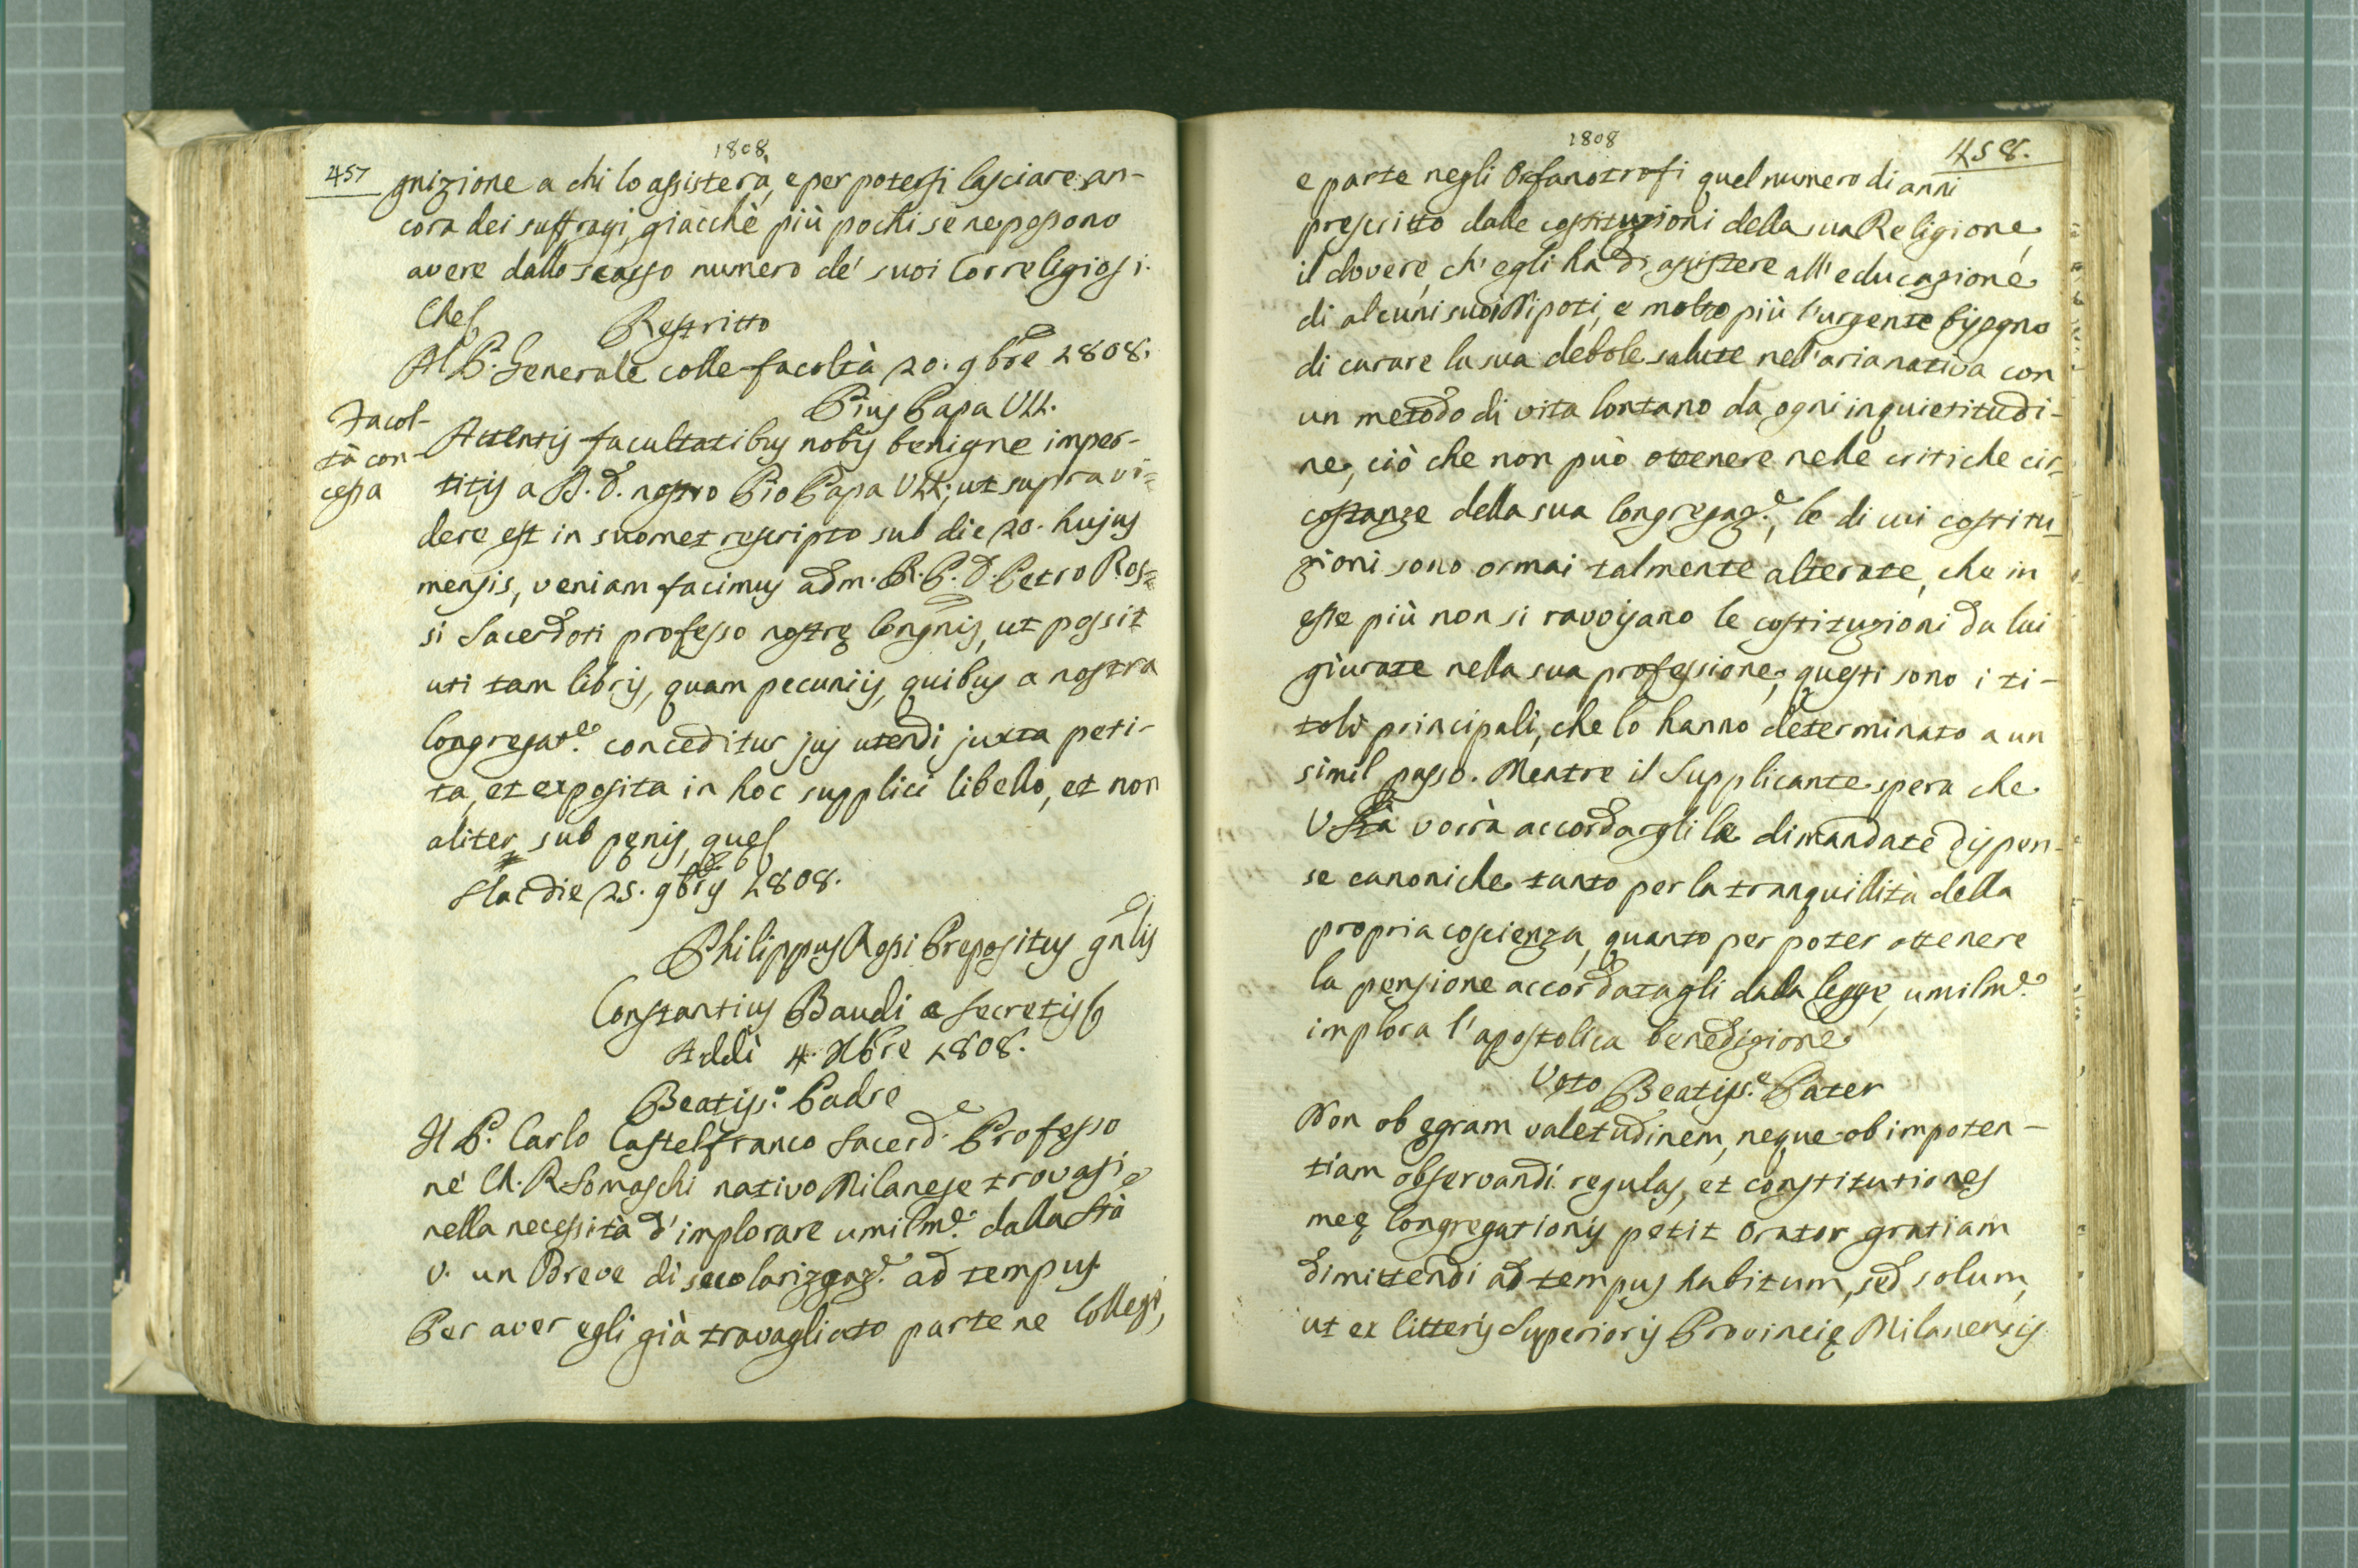 1808
457
gnizione a chi lo assisterà, e per potersi lasciare an-
cora dei suffragi, giacchè più pochi se ne possono
avere dallo scasso numero de' suoi Correligiosi.
Ches
Restritto
Al P. Generale colle facoltà 20. 9bre 1808.
Pius Papa VII.
Facol-
tà con-
cessa
Attentis facultatibus nobis benigne imper-
titis a S. D. nostro Pio Papa VII., ut supra vi=
dere est in suomet rescripto sub die 20. hujus
mensis, veniam facimus adm. R. P. D. Petro Ros=
si Sacerdoti professo nostrę Congnis, ut possit
uti tam libris, quam pecuniis, quibus a nostra
Congregat.e conceditur jus utendi juxta peti-
ta, et exposita in hoc supplici libello, et non
aliter sub pęnis, ques
Hac die 25. 9bris 1808.
Philippus Rossi Prepositus gnlis
Constantius Baudi a secretis
Addì 4. Xbre 1808.
Beatiss.o Padre
Il P. Carlo Castelfranco Sacerd.e Professo
ne' Ch. R. Somaschi nativo Milanese trovasi
nella necessità d'implorare umilm.e dalla Stà
V. un Breve di secolarizzaz.e ad tempus.
Per aver egli già travagliato parte ne Collegi,
1808
458.
e parte negli Orfanotrofi quel numero di anni
prescritto dalle costituzioni della sua Religione,
il dovere, ch'egli ha di assistere all'educazione
di alcuni suoi Nipoti, e molto più l'urgente bisogno
di curare la sua debole salute nell'aria nativa con
un metodo di vita lontano da ogni inquietitudi-
ne, ciò che non può ottenere nelle critiche cir=
costanze della sua Congregaz.e, le di cui costitu=
zioni sono ormai talmente alterate, che in
esse più non si ravvisano le costituzioni da lui
giurate nella sua professione; questi sono i ti-
toli principali, che lo hanno determinato a un
simil passo. Mentre il Supplicante spera che
V Stà vorrà accordargli le dimandate dispen-
se canoniche tanto per la tranquillità della
propria coscienza, quanto per poter ottenere
la pensione accordatagli dalla legge, umilm.e
implora l'apostolica benedizione
Voto Beatiss.e Pater
Non ob ęgram valetudinem, neque ob impoten-
tiam observandi regulas, et constitutiones
meę Congregationis petit Orator gratiam
dimittendi ad tempus habitum, sed solum,
ut ex litteris Superioris Provincię Milanensis